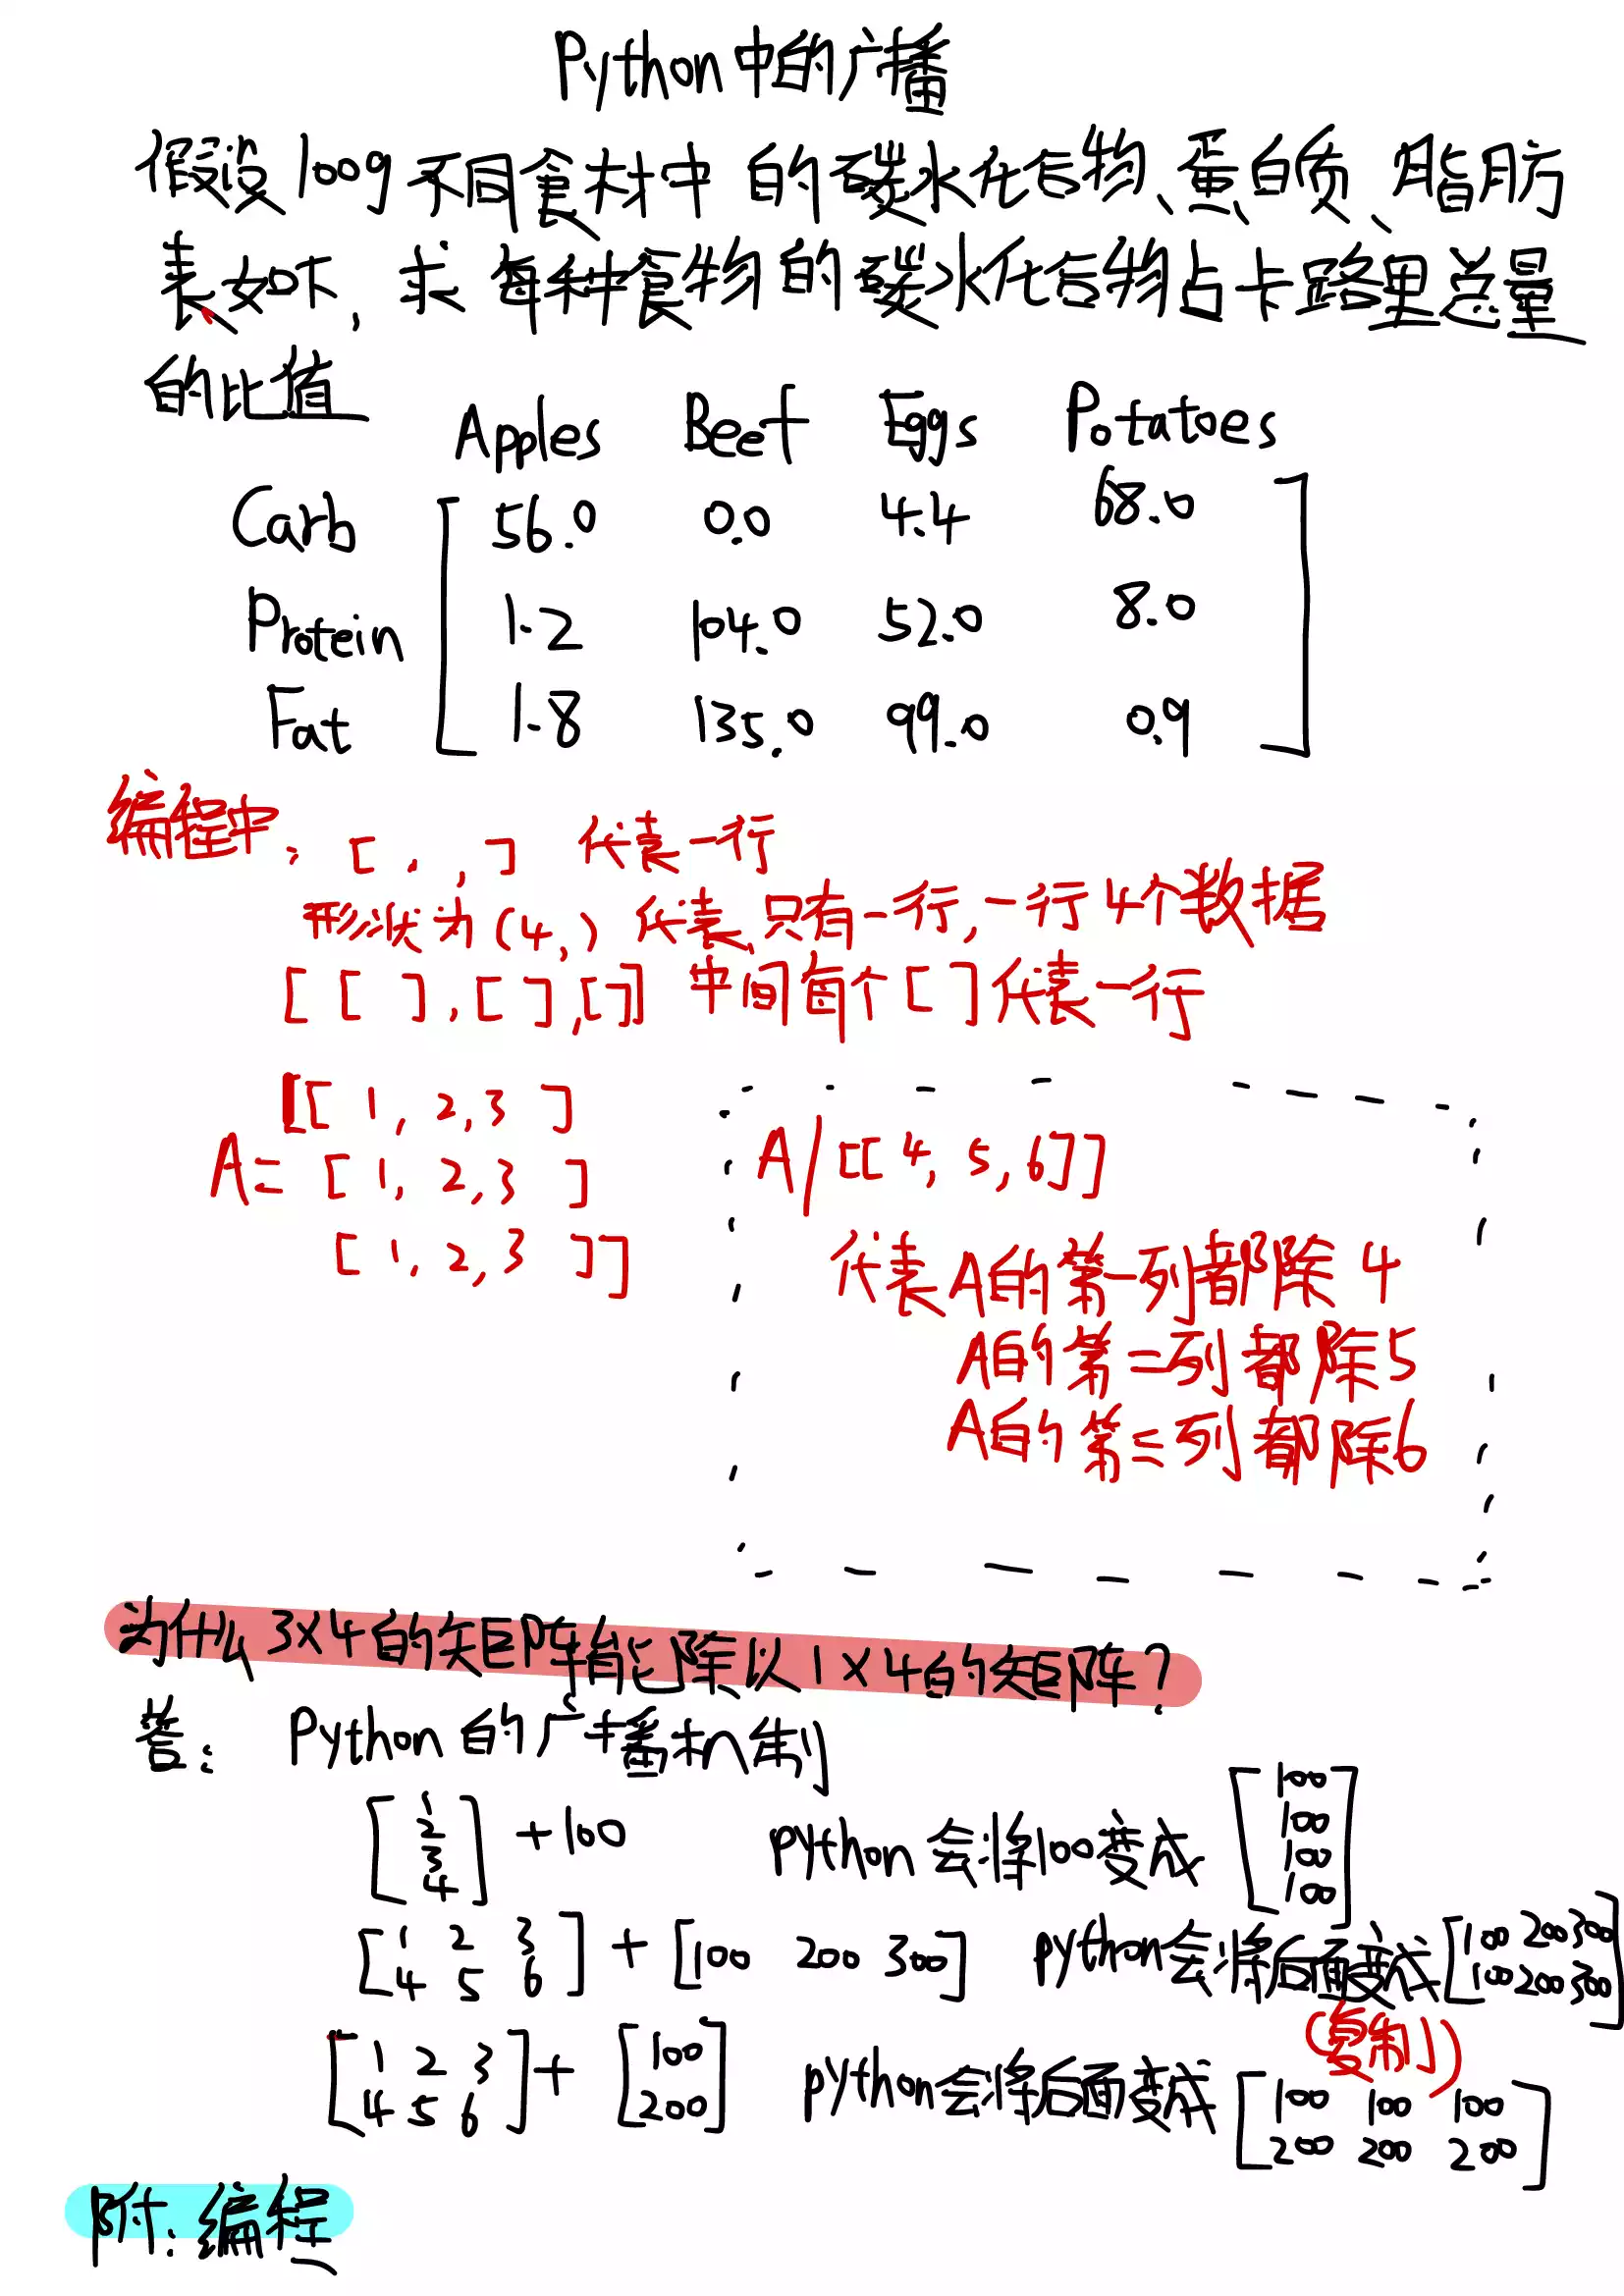 Python中的广播
假设100g不同食材中的碳水化合物、蛋白质、脂肪
表如下，求每种食物的碳水化合物占卡路里总量
的比值
Apples Beef Eggs Potatoes
Carb 56.0 0.0 4.4 68.0
Protein 1.2 104.0 52.0 8.0
Fat 1.8 135.0 99.0 0.9
编程中：[ . , ] 代表一行
形状为(4,) 代表只有一行，一行4个数据
[[ ],[ ],[ ]] 中间每个[ ]代表一行
[[ 1, 2,3 ]
A= [ 1, 2,3 ]
[ 1, 2,3 ]]
A/[[4, 5, 6]]
代表A的第一列都除4
A的第二列都除5
A的第三列都除6
为什么3×4的矩阵能除以1×4的矩阵？
答： Python的广播机制
[1 2 3 4] +100 python会将100变成 [100 100 100 100]
[1 2 3
4 5 6] + [100 200 300] python会将后面变成 [100 200 300
100 200 300]
(复制)
[1 2 3
4 5 6] + [100
200] python会将后面变成 [100 100 100
200 200 200]
附：编程